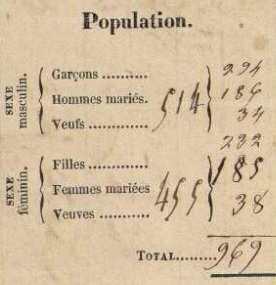 Population.
SEXE
masculin.
Garçons .......... 294
Hommes mariés. 514 186
Veufs ............ 34
SEXE
féminin.
Filles ............ 232
Femmes mariées 455 185
Veuves ........... 38
TOTAL....... 969